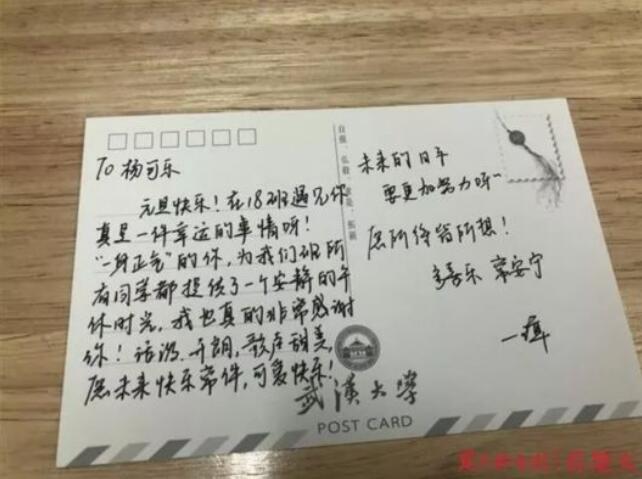 To 杨可乐
元旦快乐！在18班遇见你
真是一件幸运的事情呀！
"一身正气"的你，为我们班所
有同学都提供了一个安静的午
休时光，我也真的非常感谢
你！活泼、开朗，歌声甜美，
愿未来快乐常伴，可爱快乐！
自强、弘毅、求是、拓新
未来的日子
要更加努力呀~
愿所得皆所想！
多喜乐 常安宁
武漢大學
POST CARD